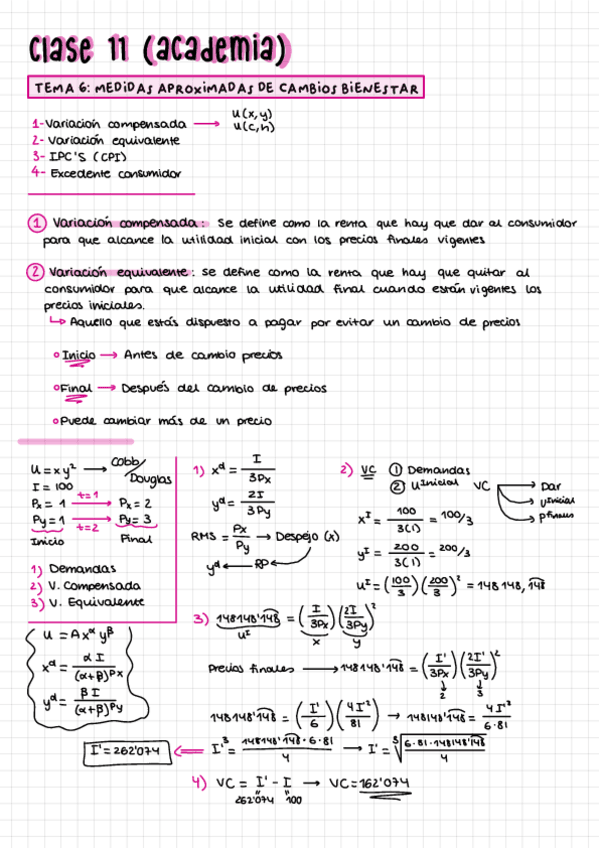 Clase 11 (academia)
TEMA 6: MEDIDAS APROXIMADAS DE CAMBIOS BIENESTAR
1- Variación compensada → u(x,y)
u(c,h)
2- Variación equivalente
3- IPC'S (CPI)
4- Excedente consumidor
① Variación compensada: Se define como la renta que hay que dar al consumidor
para que alcance la utilidad inicial con los precios finales vigentes
② Variación equivalente: se define como la renta que hay que quitar al
consumidor para que alcance la utilidad final cuando están vigentes los
precios iniciales.
↳ Aquello que estás dispuesto a pagar por evitar un cambio de precios
∘ Inicio → Antes de cambio precios
∘ Final → Después del cambio de precios
∘ Puede cambiar más de un precio
u = xy² → Cobb/
Douglas
I = 100
Px = 1 t=1 → Px = 2
Py = 1 t=2 → Py = 3
Inicio Final
1) Demandas
2) V. Compensada
3) V. Equivalente
u = Ax^α y^β
x^d = αI / (α+β)Px
y^d = βI / (α+β)Py
1) x^d = I / 3Px
y^d = 2I / 3Py
RMS = Px / Py → Despejo (x)
y^d ← RP ←
2) VC ① Demandas
② U inicial VC → Dar
→ U inicial
→ P finales
x^I = 100 / 3(1) = 100/3
y^I = 200 / 3(1) = 200/3
u^I = (100/3)(200/3)² = 148148,148
3) 148148'148 = (I / 3Px)(2I / 3Py)²
u^I x y
Precios finales → 148148'148 = (I' / 3Px)(2I' / 3Py)²
2 3
148148'148 = (I' / 6)(4I'² / 81) → 148148'148 = 4I'³ / 6·81
I' = 262'074 ⇐ I'³ = 148148'148·6·81 / 4 → I' = ³√(6·81·148148'148 / 4)
4) VC = I' - I → VC = 162'074
262'074 100